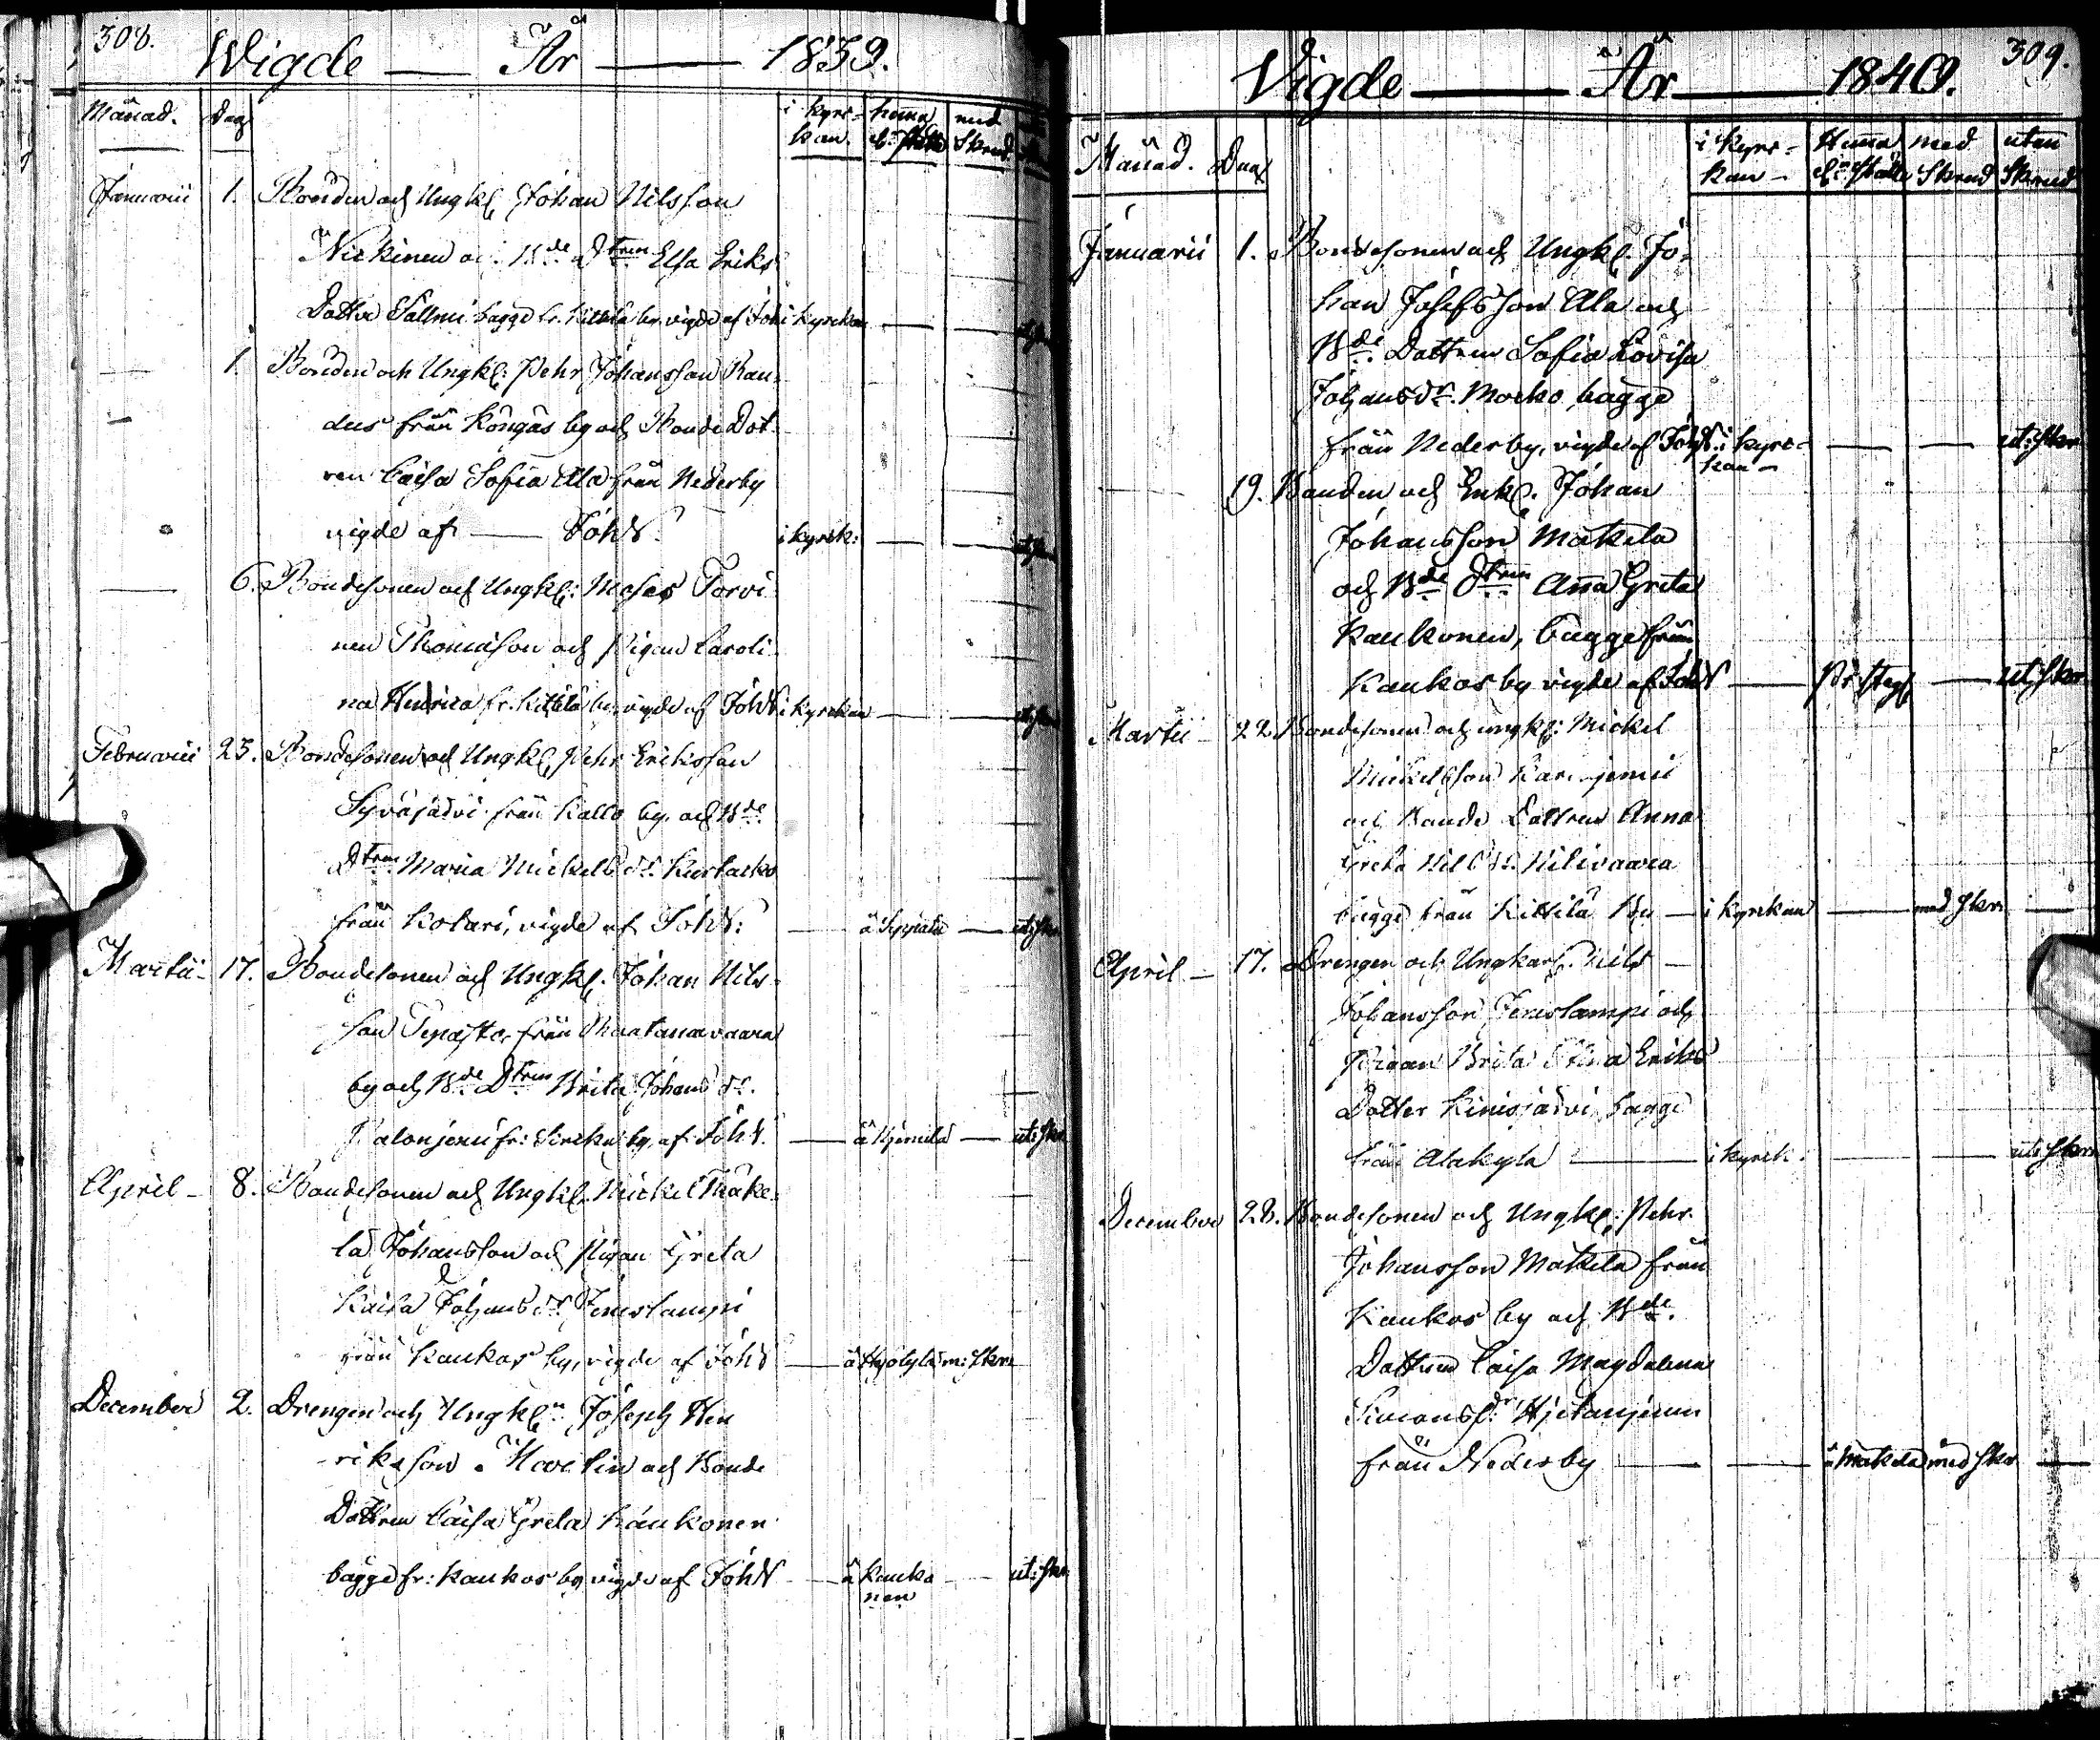 308.
Wigde — År — 1839.
Månad. Dag i kyrkan. hema el. ställe med Skrud
Januarii 1. Bonden och Ungkl Johan Nilsson
Nickinen och Bde Dtren Elsa Eriks
Dotter Sallmi bagge fr. Kittilä by vigde af Joh i kyrckan — — ut: skr
— 1. Bonden och Ungkl: Pehr Johansson Ran-
dus från Köngäs by och Bonde Dot-
ren Caisa Sofia Ala från Nederby
vigde af — Joh W i kyrck: — — ut: skr
— 6. Bondesonen och Ungkl: Moses Torvi-
nen Thomasson och Pigan Caroli-
na Henrica fr. Kittilä by vigde af Joh W i kyrckan — ut: skr
Februarii 25. Bondesonen och Ungkl Pehr Eriksson
Syväjärvi från Kallo by, och Bde
Dtren Maria Mickels dr Kurtacko
från Kolari, vigde af Joh W: — å Seppälä — ut: skr
Martii — 17. Bondesonen och Ungkl. Johan Nils-
son Tepasto, från Rautavaara
by och Bde Dtren Brita Johans dr.
Palonjemi fr: Sircka by, af Joh W. — å — ut: skr
April — 8. Bondesonen och Ungkl. Mickel Mäke-
lä Johansson och Pigan Greta
Kaisa Johans dr Jeneslampi
från Kaukos by, vigde af Joh W — å m: Skr
December 2. Drengen och Ungkln Joseph Hen
riksson och Bonde
Dottren Caisa Greta Kaukonen
bagge fr: Kaukos by vigde af Joh W — å Kauko — ut: skr
nen
309.
Vigde — År — 1840.
Månad. Dag i Kyrkan — Hema el. ställe med Skrud utan Skrud
Januarii 1. Bondesonen och Ungkl. Jo-
han Josefsson Ala och
Bde. Dottren Sofia Lovisa
Johans dr. Morko bagge
från Nederby, vigde af Joh W. i kyrc- — — ut: skr
kan —
— 19. Bonden och Enkl. Johan
Johansson Mäkelä
och Bde Dtren Aña Greta
Kaukonen, bagge från
Kaukos by vigde af Joh W — Pr: steg — ut: skr
Martii — 22. Bondesonen och ungkl: Mickel
Mickelsson
och Bonde Dottren Anna
Greta Nils dr. Nilivaara
bagge från Kittilä By — i kyrckan — med skr. —
April — 17. Drengen och Ungkarl. Nils —
Johansson Jeneslampi och
Pigan Brita Stina Eriks
Dotter Kinisjärvi bagge
från Alakylä — i kyrck. — — ut: skr
December 28. Bondesonen och Ungkl: Pehr.
Johansson Mäkelä från
Kaukos by och Bde.
Dottren Caisa Magdalena
Simons dr Hjetanjemi
från Nederby — — å Mäkelä med skr —